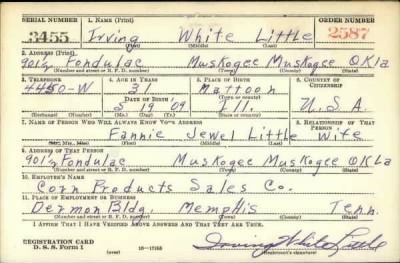 SERIAL NUMBER 1. NAME (Print) ORDER NUMBER
3455 Irving White Little 2587
(First) (Middle) (Last)
2. ADDRESS (Print)
901½ Fondulac Muskogee Muskogee OKla
(Number and street or R. F. D. number) (Town) (County) (State)
3. TELEPHONE 4. AGE IN YEARS 5. PLACE OF BIRTH 6. COUNTRY OF CITIZENSHIP
4450-W 31 Mattoon
DATE OF BIRTH (Town or county) U.S.A.
3 19 09 Ill.
(Mo.) (Day) (Yr.) (State or country)
7. NAME OF PERSON WHO WILL ALWAYS KNOW YOUR ADDRESS 8. RELATIONSHIP OF THAT PERSON
Fannie Jewel Little Wife
(Mr., Mrs., Miss) (First) (Middle) (Last)
9. ADDRESS OF THAT PERSON
901½ Fondulac Muskogee Muskogee OKLa
(Number and street or R. F. D. number) (Town) (County) (State)
10. EMPLOYER'S NAME
Corn Products Sales Co.
11. PLACE OF EMPLOYMENT OR BUSINESS
Dermon Bldg. Memphis Tenn.
(Number and street or R. F. D. number) (Town) (County) (State)
I AFFIRM THAT I HAVE VERIFIED ABOVE ANSWERS AND THAT THEY ARE TRUE.
REGISTRATION CARD
D. S. S. Form 1 (over) 16—17105 Irving White Little
(Registrant's signature)